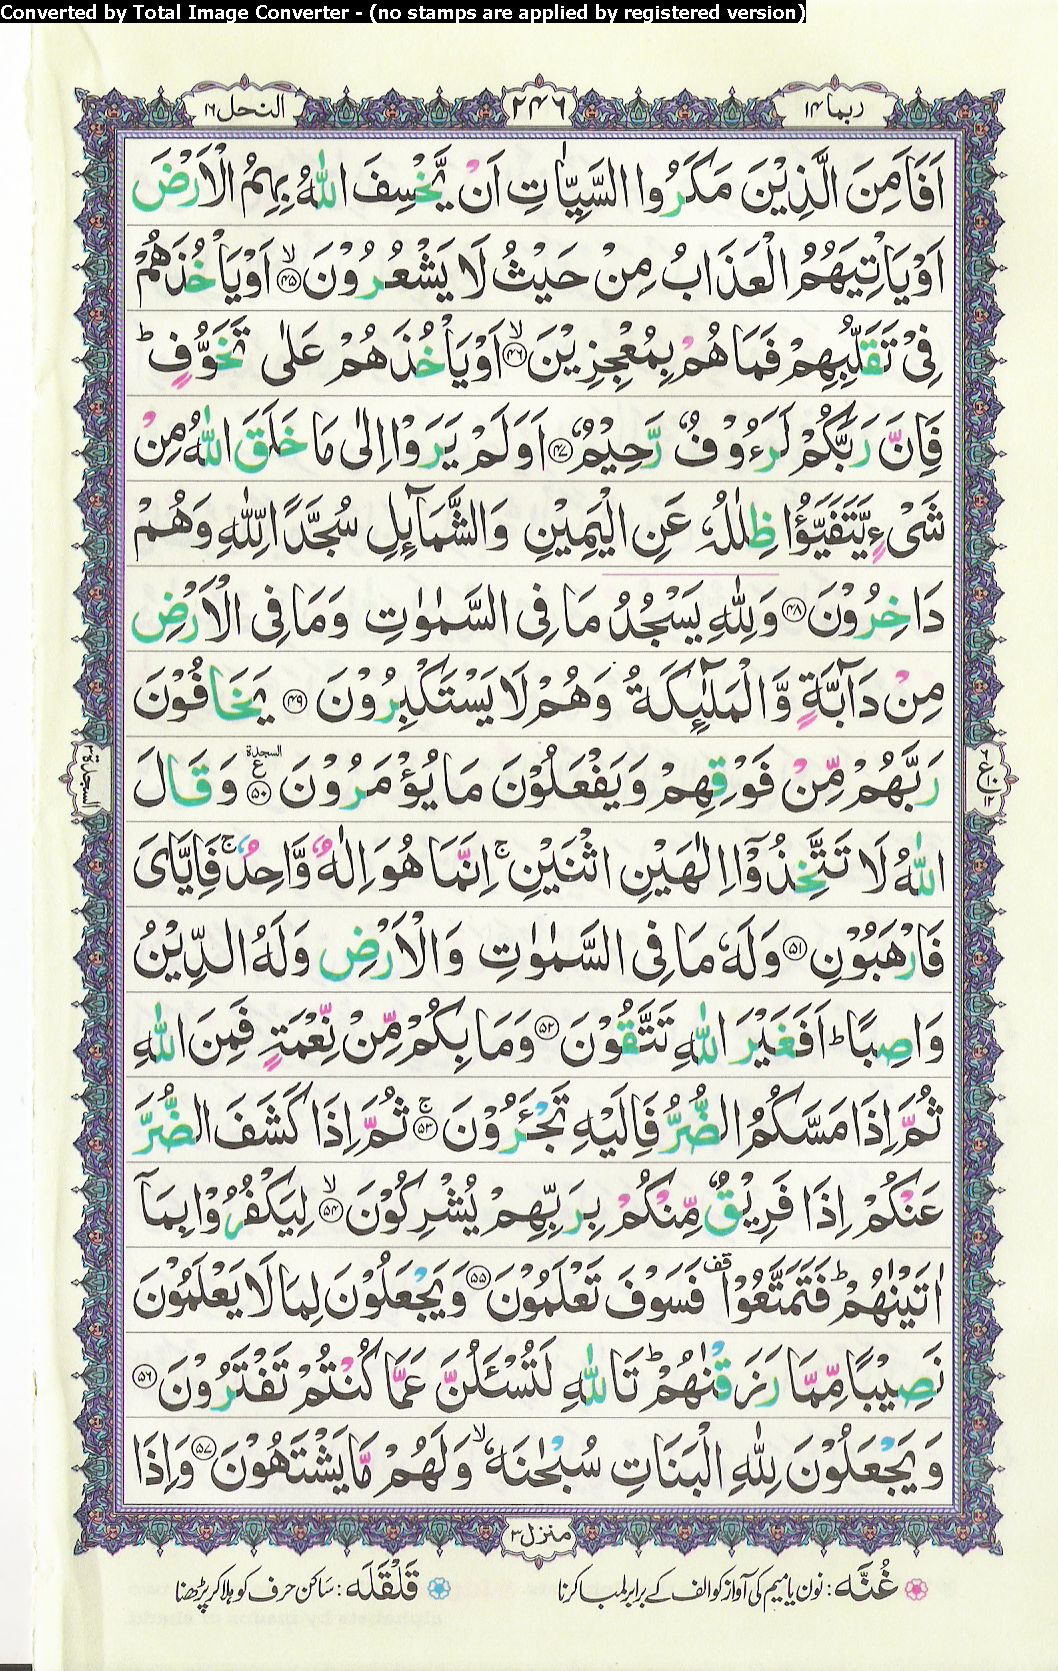 Converted by Total Image Converter - (no stamps are applied by registered version)
ربما ۱۴
۲۴۶
النحل ۱۶
اَفَاَمِنَ الَّذِيْنَ مَكَرُوا السَّيِّاٰتِ اَنْ يَّخْسِفَ اللّٰهُ بِهِمُ الْاَرْضَ
اَوْ يَاْتِيَهُمُ الْعَذَابُ مِنْ حَيْثُ لَا يَشْعُرُوْنَ ۙ﴿۴۵﴾ اَوْ يَاْخُذَهُمْ
فِيْ تَقَلُّبِهِمْ فَمَا هُمْ بِمُعْجِزِيْنَ ۙ﴿۴۶﴾ اَوْ يَاْخُذَهُمْ عَلٰى تَخَوُّفٍ ؕ
فَاِنَّ رَبَّكُمْ لَرَءُوْفٌ رَّحِيْمٌ ﴿۴۷﴾ اَوَلَمْ يَرَوْا اِلٰى مَا خَلَقَ اللّٰهُ مِنْ
شَيْءٍ يَّتَفَيَّؤُا ظِلٰلُهٗ عَنِ الْيَمِيْنِ وَالشَّمَآئِلِ سُجَّدًا لِّلّٰهِ وَهُمْ
دَاخِرُوْنَ ﴿۴۸﴾ وَلِلّٰهِ يَسْجُدُ مَا فِى السَّمٰوٰتِ وَمَا فِى الْاَرْضِ
مِنْ دَآبَّةٍ وَّالْمَلٰٓئِكَةُ وَهُمْ لَا يَسْتَكْبِرُوْنَ ﴿۴۹﴾ يَخَافُوْنَ
رَبَّهُمْ مِّنْ فَوْقِهِمْ وَيَفْعَلُوْنَ مَا يُؤْمَرُوْنَ ﴿۵۰﴾ السجدة ع وَقَالَ
اللّٰهُ لَا تَتَّخِذُوْٓا اِلٰهَيْنِ اثْنَيْنِ ۚ اِنَّمَا هُوَ اِلٰهٌ وَّاحِدٌ ۚ فَاِيَّايَ
فَارْهَبُوْنِ ﴿۵۱﴾ وَلَهٗ مَا فِى السَّمٰوٰتِ وَالْاَرْضِ وَلَهُ الدِّيْنُ
وَاصِبًا ؕ اَفَغَيْرَ اللّٰهِ تَتَّقُوْنَ ﴿۵۲﴾ وَمَا بِكُمْ مِّنْ نِّعْمَةٍ فَمِنَ اللّٰهِ
ثُمَّ اِذَا مَسَّكُمُ الضُّرُّ فَاِلَيْهِ تَجْئَرُوْنَ ۚ﴿۵۳﴾ ثُمَّ اِذَا كَشَفَ الضُّرَّ
عَنْكُمْ اِذَا فَرِيْقٌ مِّنْكُمْ بِرَبِّهِمْ يُشْرِكُوْنَ ۙ﴿۵۴﴾ لِيَكْفُرُوْا بِمَآ
اٰتَيْنٰهُمْ ؕ فَتَمَتَّعُوْا قف فَسَوْفَ تَعْلَمُوْنَ ﴿۵۵﴾ وَيَجْعَلُوْنَ لِمَا لَا يَعْلَمُوْنَ
نَصِيْبًا مِّمَّا رَزَقْنٰهُمْ ؕ تَاللّٰهِ لَتُسْئَلُنَّ عَمَّا كُنْتُمْ تَفْتَرُوْنَ ﴿۵۶﴾
وَيَجْعَلُوْنَ لِلّٰهِ الْبَنَاتِ سُبْحٰنَهٗ ۙ وَلَهُمْ مَّا يَشْتَهُوْنَ ﴿۵۷﴾ وَاِذَا
ع ۱۰ ۱۲
السجدة ۳
منزل ۳
غُنَّه : نون یا میم کی آواز کو الف کے برابر لمبا کرنا
قَلْقَلَه : ساکن حرف کو ہلا کر پڑھنا